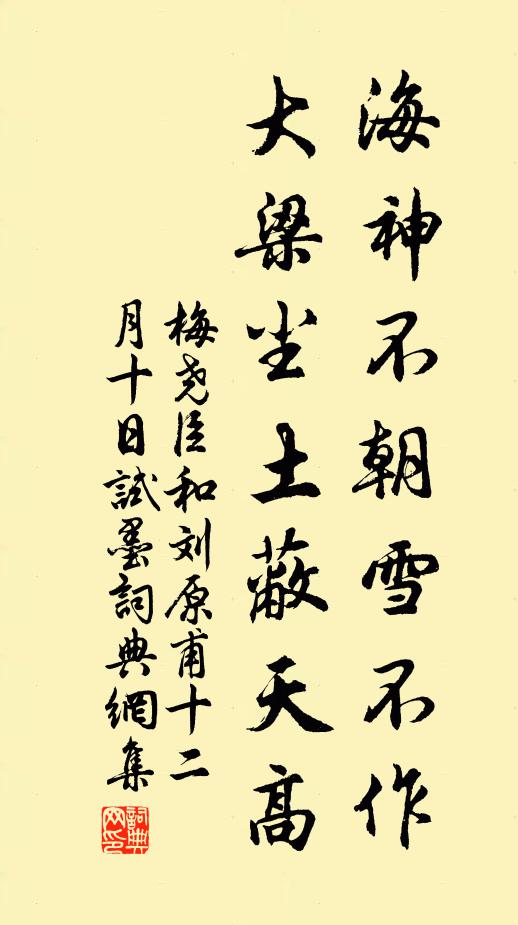 海神不朝雪不作
大梁尘土蔽天高
梅尧臣和刘原甫十二
月十日試墨詞典網集
詞典
网印